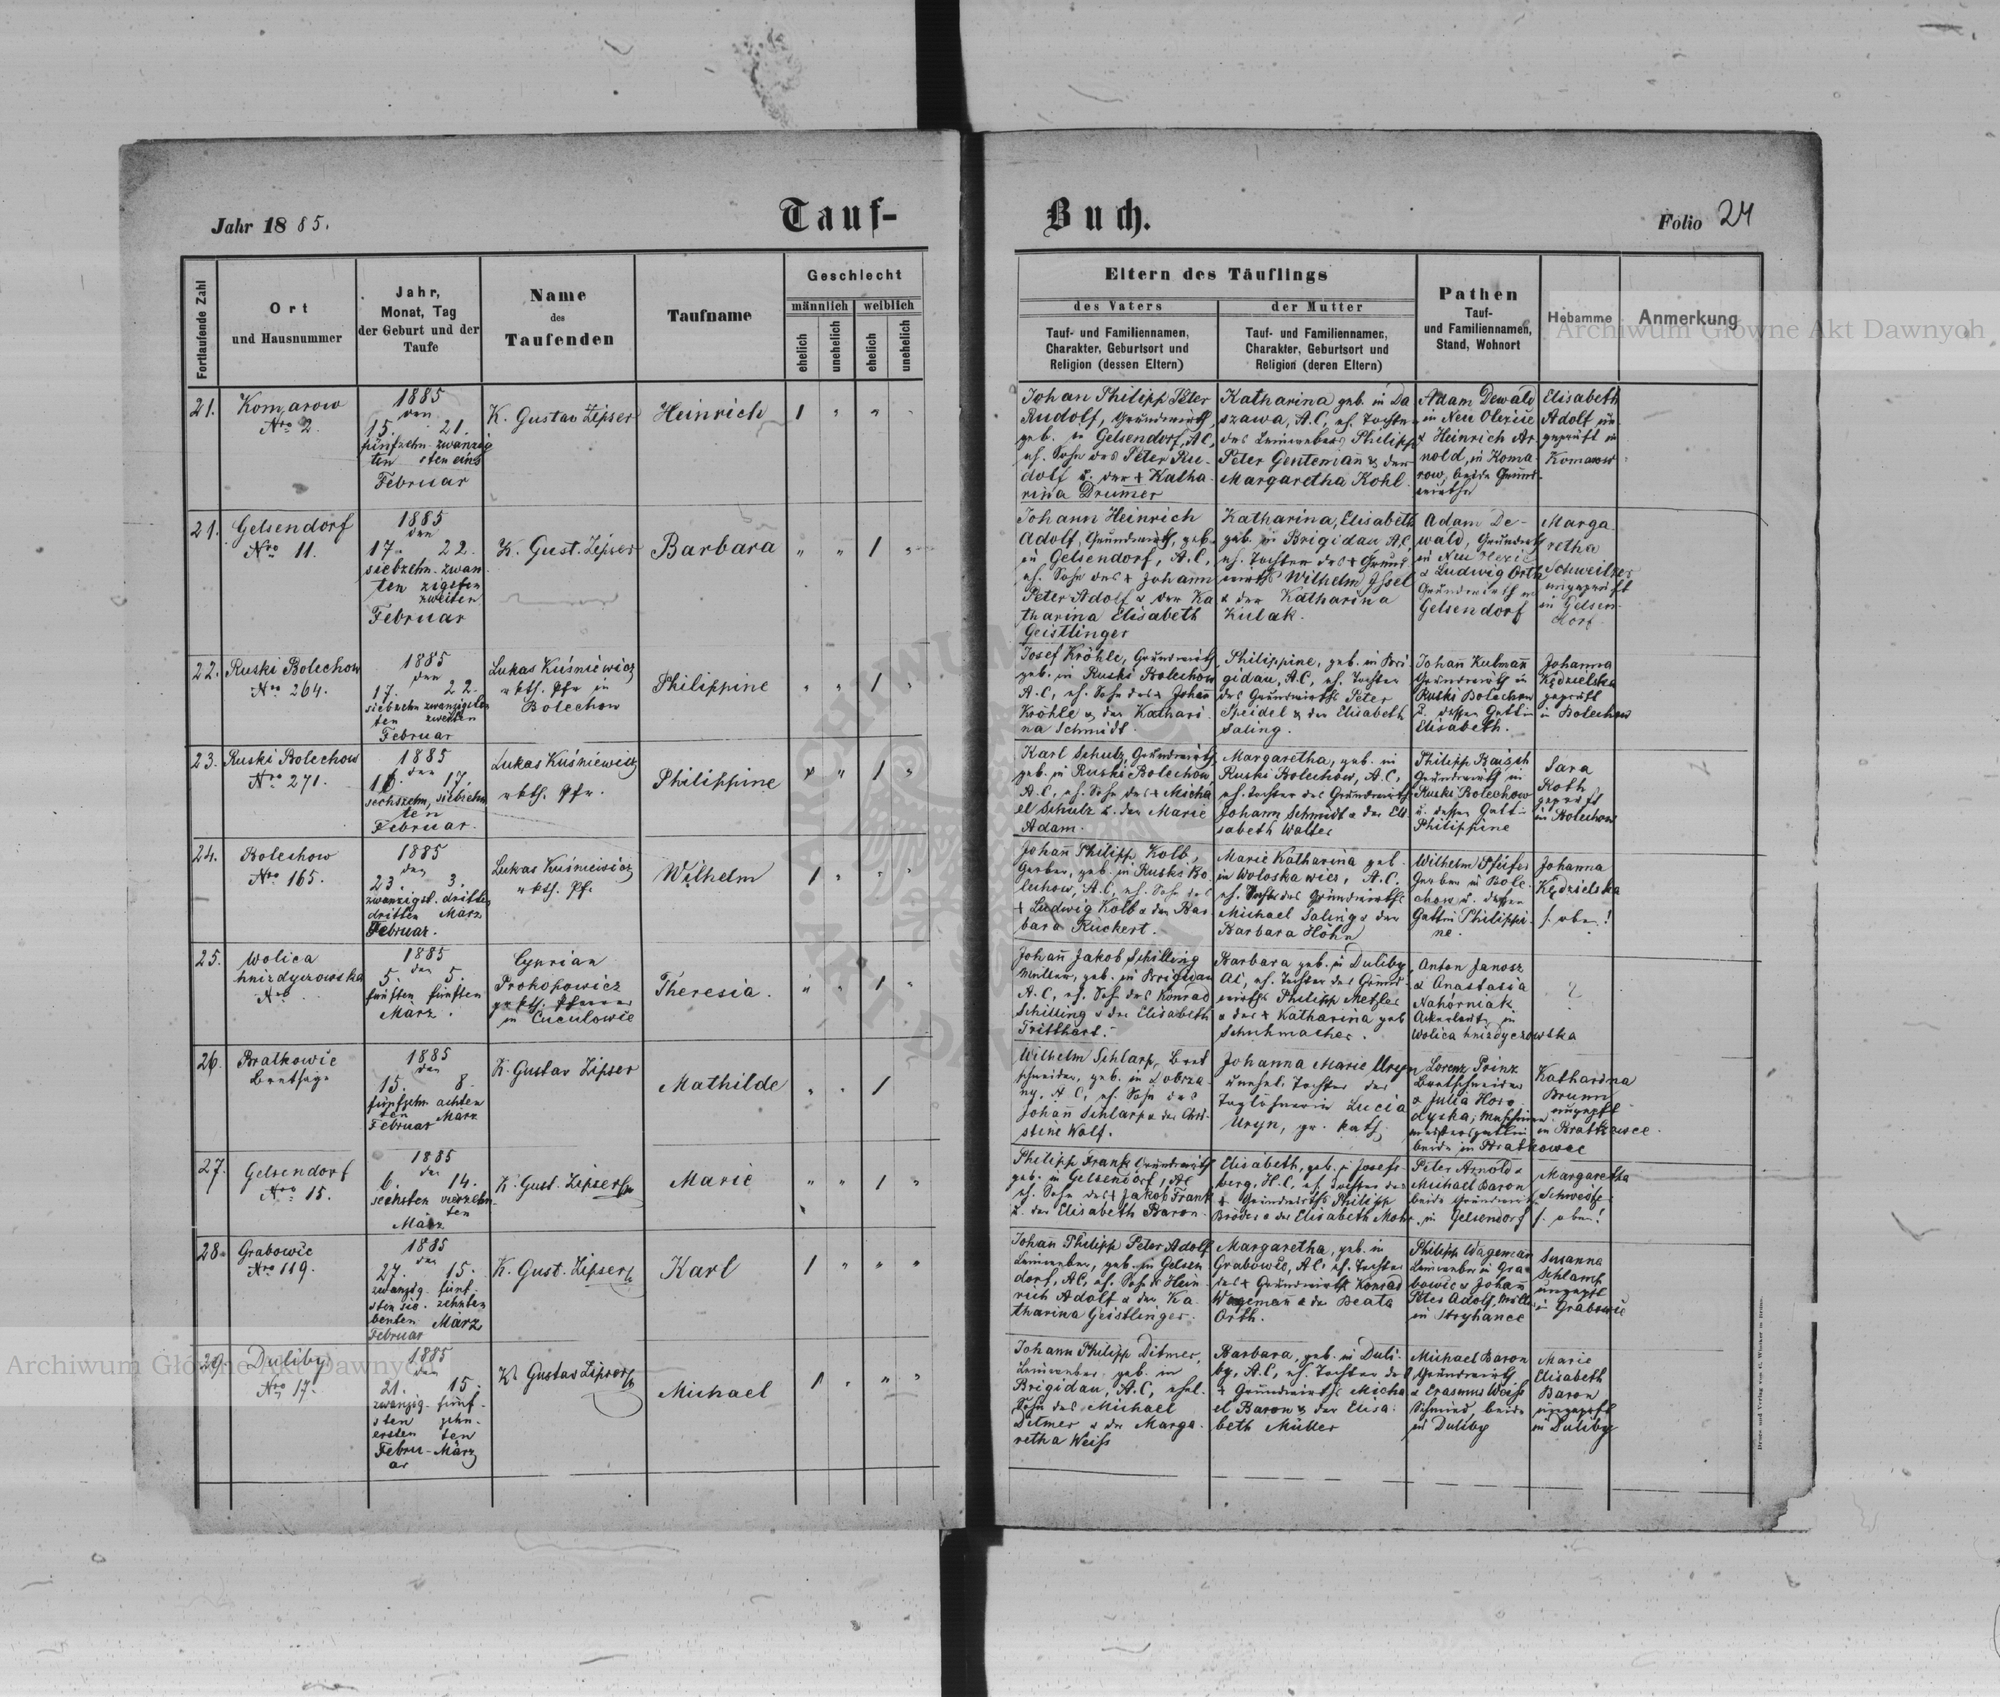 Jahr 1885.
Tauf-
Buch.
Folio 24
Fortlaufende Zahl
Ort
und Hausnummer
Jahr,
Monat, Tag
der Geburt und der
Taufe
Name
des
Taufenden
Taufname
Geschlecht
männlich
weiblich
ehelich
unehelich
ehelich
unehelich
Eltern des Täuflings
des Vaters
der Mutter
Tauf- und Familiennamen,
Charakter, Geburtsort und
Religion (dessen Eltern)
Tauf- und Familiennamen,
Charakter, Geburtsort und
Religion (deren Eltern)
Pathen
Tauf-
und Familiennamen,
Stand, Wohnort
Hebamme
Anmerkung
21.
Komarow
Nro 2.
1885
den
15. 21.
fünfzehn- zwanzig
ten sten eins
Februar
K. Gustav Zipser
Heinrich
1 " " "
Johan Philipp Peter
Rudolf, Grundwirth,
geb. in Gelsendorf, A.C,
eh. Sohn des Peter Ru-
dolf u. der + Katha-
rina Drumer
Katharina geb. in Da
szawa, A.C, eh. Tochter
des Leinwebers Philipp
Peter Gentemañ & der
Margaretha Kohl.
Adam Dewald
in Neu Olexice
& Heinrich Ar
nold, in Koma-
row, beide Grund-
wirthe
Elisabeth
Adolf un
geprüft in
Komarow
21.
Gelsendorf
Nro 11.
1885
den
17. 22.
siebzehn- zwan
ten zigsten
zweiten
Februar
K. Gust. Zipser
Barbara
" " 1 "
Johann Heinrich
Adolf, Grundwirth, geb.
in Gelsendorf, A.C,
eh. Sohn des + Johann
Peter Adolf & der Ka
tharina Elisabeth
Geistlinger
Katharina, Elisabeth
geb. in Brigidau A.C,
eh. Tochter des + Grund
wirths Wilhelm Issel
& der Katharina
Kulak.
Adam De-
wald, Grundwirth
in Neu Olexic
& Ludwig Orth
Grundwirth in
Gelsendorf
Marga
retha
Schweitzer
ungeprüft
in Gelsen-
dorf.
22.
Ruski Bolechow
Nro 264.
1885
den
17. 22.
siebzehn zwanzigsten
ten zweiten
Februar
Lukas Kuśniewicz
r kth. Pfr in
Bolechow
Philippine
" " 1 "
Josef Kröhle, Grundwirth
geb. in Ruski Bolechow
A.C, eh. Sohn des + Johann
Kröhle & der Kathari
na Schmidt.
Philippine, geb. in Bri
gidau, A.C, eh. Tochter
des Grundwirths Peter
Speidel & der Elisabeth
Saling.
Johann Kulmann
Grundwirth in
Ruski Bolechow
u. dessen Gattin
Elisabeth.
Johanna
Kędzielska
geprüft
in Bolechow
23.
Ruski Bolechow
Nro 271.
1885
den
16. 17.
sechszehn, siebzehn
ten
Februar.
Lukas Kuśniewicz
r kth. Pfr.
Philippine
" " 1 "
Karl Schulz, Grundwirth
geb. in Ruski Bolechow
A.C, eh. Sohn des + Micha
el Schulz u. der Marie
Adam.
Margaretha, geb. in
Ruski Bolechow, A.C,
eh. Tochter des Grundwirths
Johann Schmidt & der Eli
sabeth Walter
Philipp Kaisch
Grundwirth in
Ruski Bolechow
u. dessen Gattin
Philippine
Sara
Koth
geprüft
in Bolechow
24.
Bolechow
Nro 165.
1885
den
23. 3.
zwanzigst. dritten
dritten März
Februar.
Lukas Kuśniewicz
r kth. Pf.
Wilhelm
1 " " "
Johañ Philipp Kolb,
Gerber, geb. in Ruski Bo
lechow, A.C, eh. Sohn des
+ Ludwig Kolb & der Bar
bara Ruckert.
Marie Katharina geb.
in Woloskawies, A.C.
eh. Tochter des Grundwirths
Michael Saling & der
Barbara Höhn
Wilhelm Pfeifer
Gerber in Bole
chow u. dessen
Gattin Philippi-
ne.
Johanna
Kędzielska
s. oben!
25.
Wolica
hnizdyczowska
Nro
1885
den
5. 5.
fünften fünften
März.
Cyprian
Prokopowicz
gr kth. Pfarrer
in Cuculowie
Theresia.
" " 1 "
Johañ Jakob Schilling
Müller, geb. in Brigidau
A.C, eh. Sohn des Konrad
Schilling & der Elisabeth
Tritthart.
Barbara geb. in Duliby,
AC, eh. Tochter des Grund-
wirths Philipp Metzler
& der + Katharina geb
Schuhmacher.
Anton Janosz
& Anastasia
Nahórniak
Ackersleute in
Wolica hnizdyczowska
?
26.
Bratkowie
Brettsäge
1885
den
15. 8.
fünfzehn achten
ten März
Februar
K. Gustav Zipser
Mathilde
" " 1
Wilhelm Schlarp, Bret
schneider, geb. in Dobrza-
ny, A.C, eh. Sohn des
Johañ Schlarp & der Chri-
stine Wolf.
Johanna Marie Uryn
unehel. Tochter der
Taglöhnerin Lucia
Uryn, gr. kath.
Lorenz Prinz
Brettschneider
& Julia Horo
dyska, Maschinen
meistersgattin
beide in Bratkowce
Katharina
Brunn
ungepft
in Bratkowce.
27.
Gelsendorf
Nro 15.
1885
den
6. 14.
sechsten vierzehn-
ten
März
K. Gust. Zipser
Marie
" " 1 "
Philipp Frank Grundwirth
geb. in Gelsendorf, AC
eh. Sohn des + Jakob Frank
u. der Elisabeth Baron.
Elisabeth, geb. in Josefs-
berg, H.C, eh. Tochter des
+ Grundwirths Philipp
Bröder & der Elisabeth Mohr.
Peter Arnold &
Michael Baron
beide Grundwirthe
in Gelsendorf
Margaretha
Schweitze-
s. oben!
28.
Grabowie
Nro 119.
1885
den
27. 15.
zwanzig- fünf-
sten sie- zehnten
benten März
Februar
K. Gust. Zipser
Karl
1 " " "
Johañ Philipp Peter Adolf
Leinweber, geb. in Gelsen
dorf, AC, eh. Sohn d. Hein-
rich Adolf & der Ka-
tharina Geistlinger.
Margaretha, geb. in
Grabowie, AC, eh. Tochter
des + Grundwirths Konrad
Wagemañ & der Beata
Orth.
Philipp Wageman
Leinweber in Gra-
bowie & Johañ
Peter Adolf, Müller
in Stryhance
Susanna
Schlamp
ungepft
in Grabowie
29.
Duliby
Nro 17.
1885
den
21. 15.
zwanzig- fünf-
sten zehn-
ersten ten
Febru- März
ar
K. Gustav Zipser
Michael
1 " " "
Johann Philipp Ditmer,
Leinweber, geb. in
Brigidau, A.C, ehel.
Sohn des Michael
Ditmer & der Marga-
retha Weiss
Barbara, geb. in Duli-
by, A.C, eh. Tochter des
+ Grundwirths Micha
el Baron & der Elisa-
beth Müller
Michael Baron
Grundwirth
& Erasmus Weiss
Schmied, beide
in Duliby
Marie
Elisabeth
Baron
ungepft
in Duliby
Archiwum Główne Akt Dawnych
Archiwum Główne Akt Dawnych